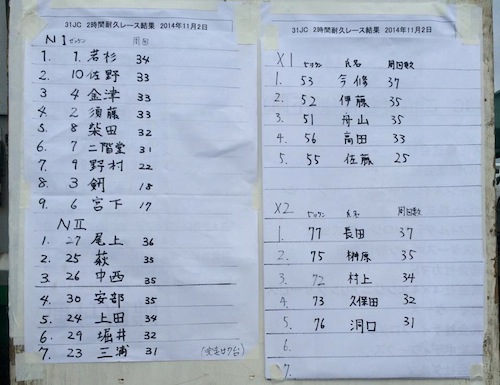 31JC 2時間耐久レース結果 2014年11月2日
NI ゼッケン 周回
1. 1. 若杉 34
2. 10 佐野 33
3 4 金津 33
4. 2 須藤 33
5. 8 柴田 32
6. 7 二階堂 31
7. 9 野村 22
8. 3 剱 18
9. 6 宮下 17
NII
1. 27 尾上 36
2. 25 萩 35
3 26 中西 35
4. 30 安部 35
5. 24 上田 34
6. 29 堀井 32
7. 23 三浦 31
31JC 2時間耐久レース結果 2014年11月2日
X1 ゼッケン 氏名 周回数
1. 53 今修 37
2. 52 伊藤 35
3. 51 舟山 35
4. 56 高田 33
5. 55 佐藤 25
X2 ゼッケン 氏名 周回数
1. 77 長田 37
2. 75 榊原 35
3. 72 村上 34
4. 73 久保田 32
5. 76 洞口 31
6.
7.